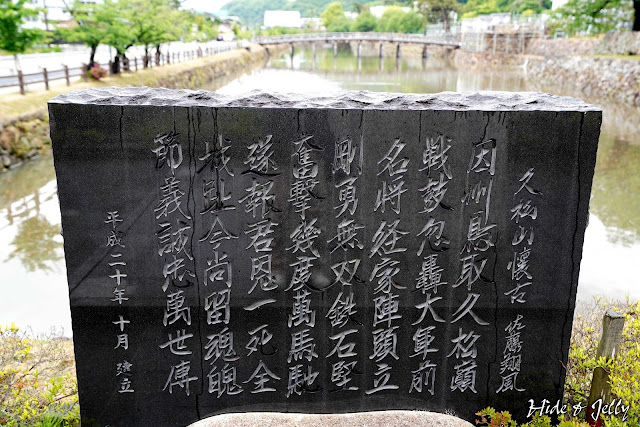 久松山懐古 佐藤翔風
因州鳥取久松巓
戦鼓忽轟大軍前
名将経家陣頭立
剛勇無双鉄石堅
奮撃幾度萬馬馳
遂報君恩一死全
城趾今尚留魂魄
節義誠忠萬世傳
平成二十年十月 建立
Hide & Jelly